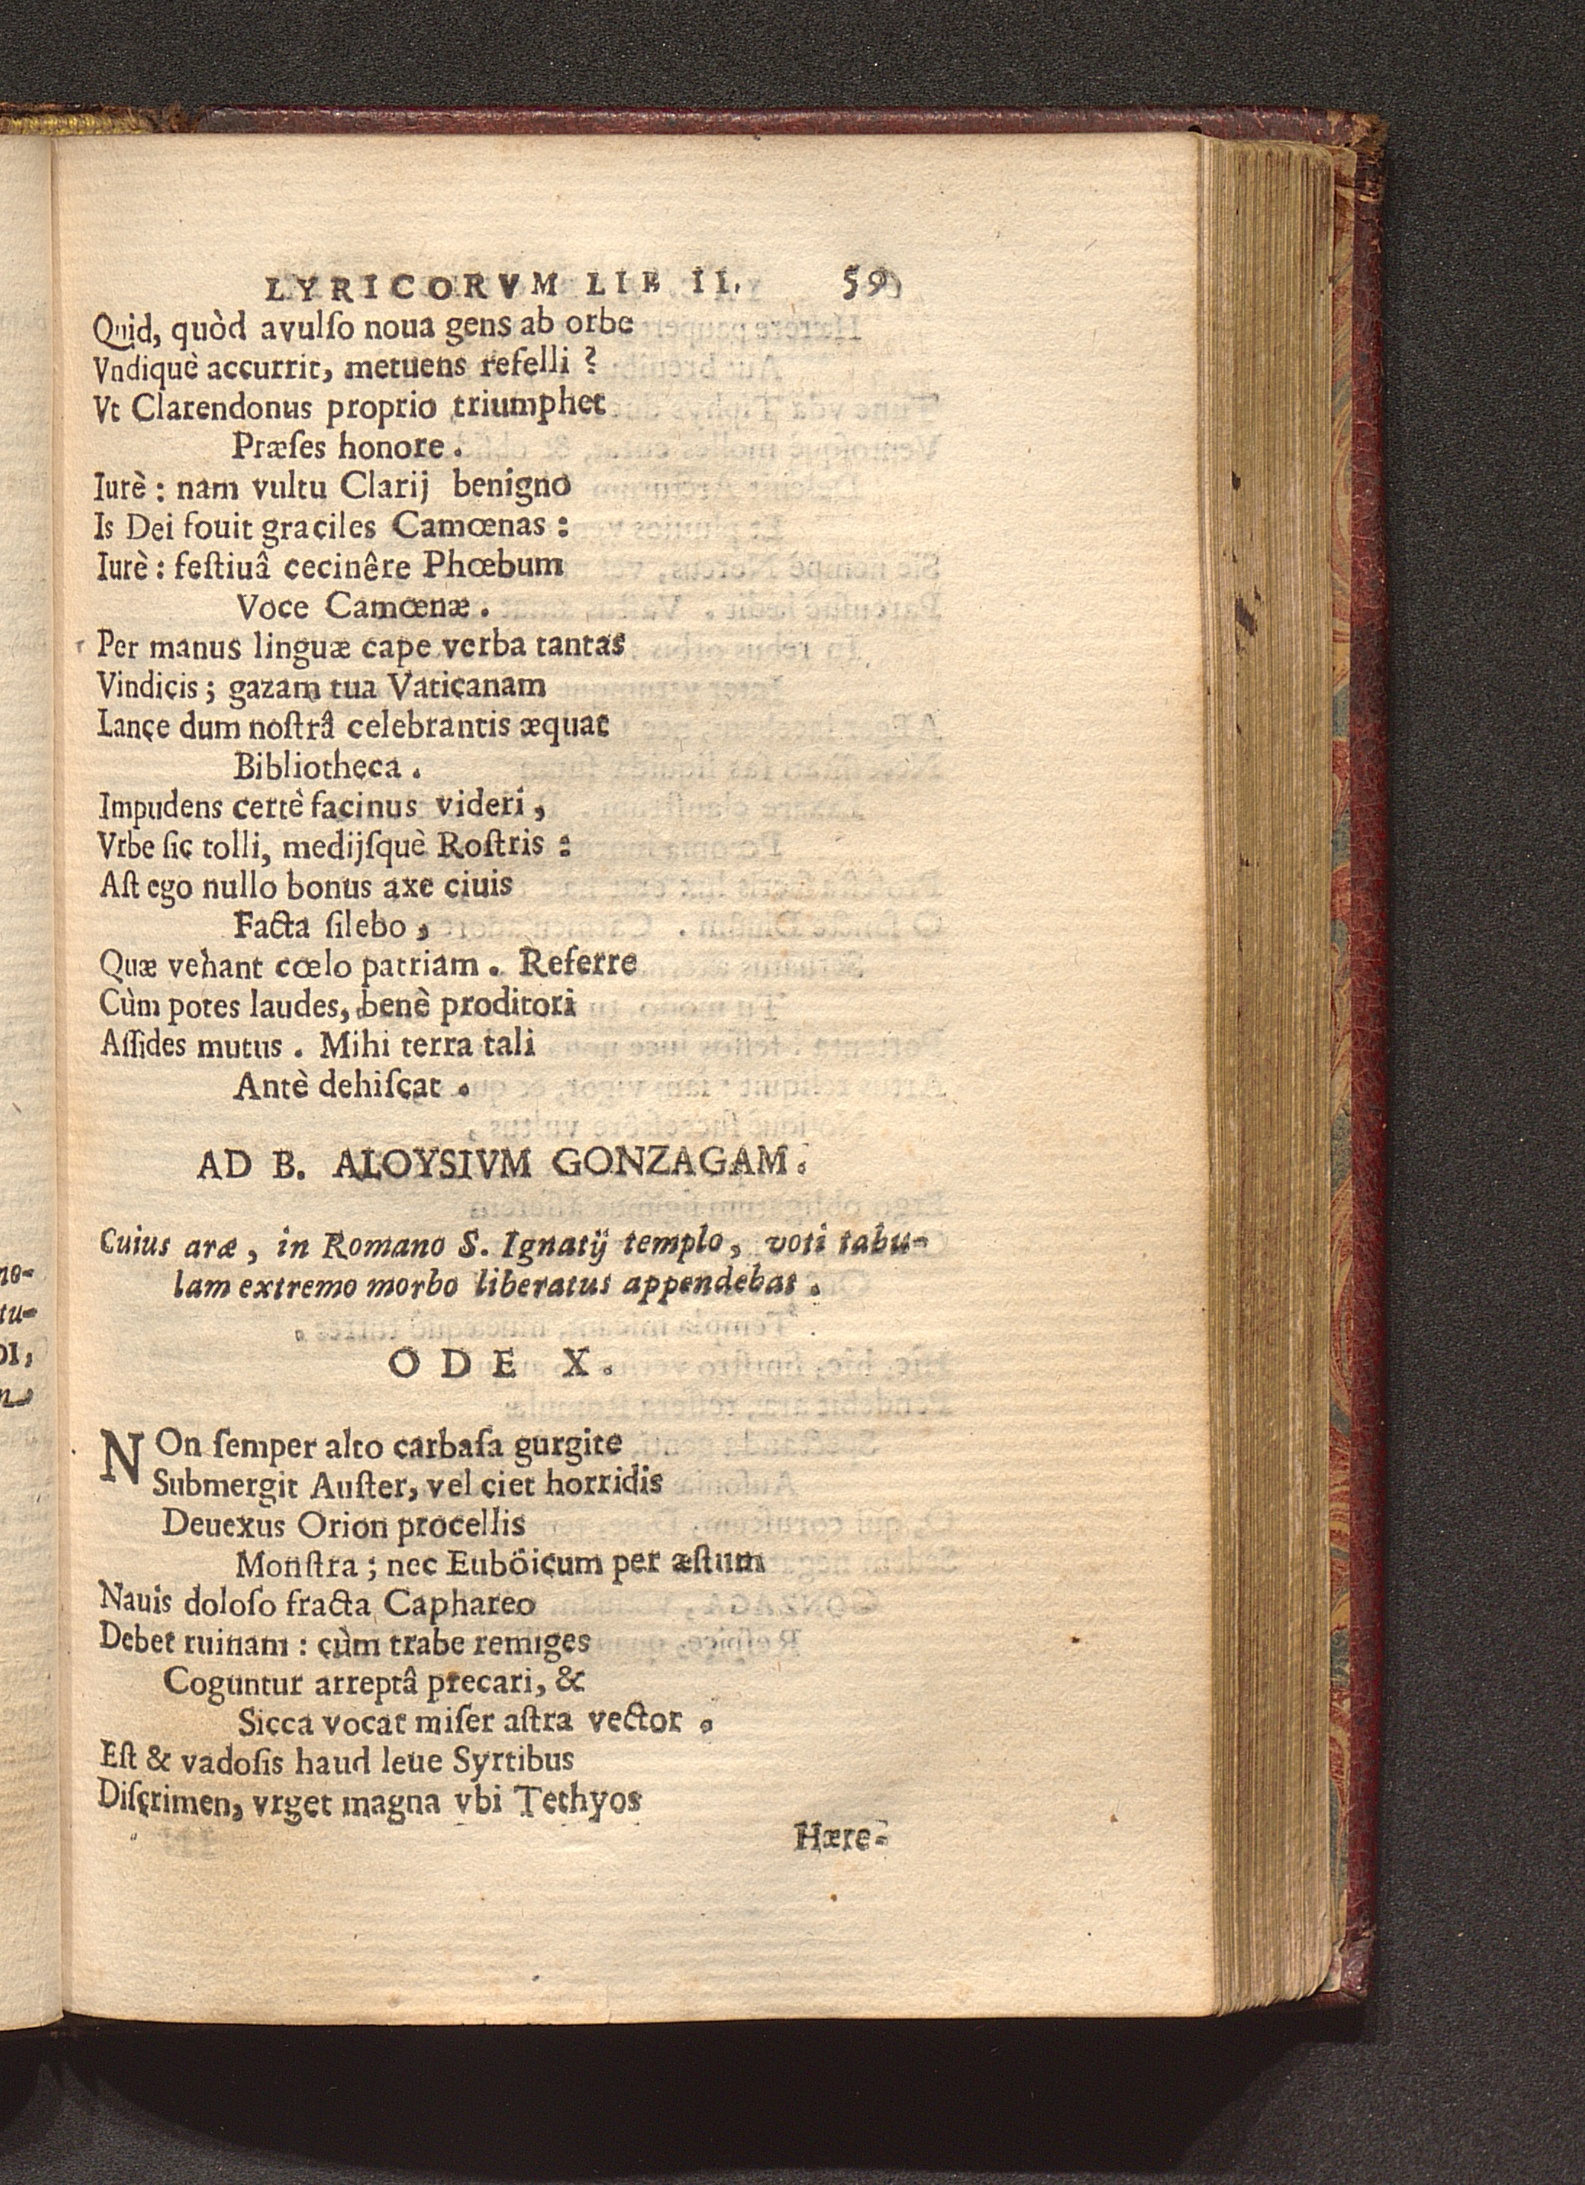 LYRICORVM LIB II. 59
Quid, quòd avulſo noua gens ab orbe
Vndiquè accurrit, metuens refelli ?
Vt Clarendonus proprio triumphet
Præſes honore .
Iurè : nam vultu Clarij benigno
Is Dei fouit graciles Camœnas :
Iurè : feſtiuâ cecinêre Phœbum
Voce Camœnæ .
Per manus linguæ cape verba tantas
Vindicis ; gazam tua Vaticanam
Lance dum noſtrâ celebrantis æquat
Bibliotheca .
Impudens certè facinus videri ,
Vrbe ſic tolli, medijſquè Roſtris :
Aſt ego nullo bonus axe ciuis
Facta ſilebo ,
Quæ vehant cœlo patriam . Referre
Cùm potes laudes, benè proditori
Aſſides mutus . Mihi terra tali
Antè dehiſcat .
AD B. ALOYSIVM GONZAGAM.
Cuius aræ , in Romano S. Ignatij templo , voti tabu-
lam extremo morbo liberatus appendebat .
ODE X.
NOn ſemper alto carbaſa gurgite
Submergit Auſter, vel ciet horridis
Deuexus Orion procellis
Monſtra ; nec Euböicum per æſtum
Nauis doloſo fracta Caphareo
Debet ruinam : cùm trabe remiges
Coguntur arreptâ precari, &
Sicca vocat miſer aſtra vector .
Eſt & vadoſis haud leue Syrtibus
Diſcrimen, vrget magna vbi Tethyos
Hære-